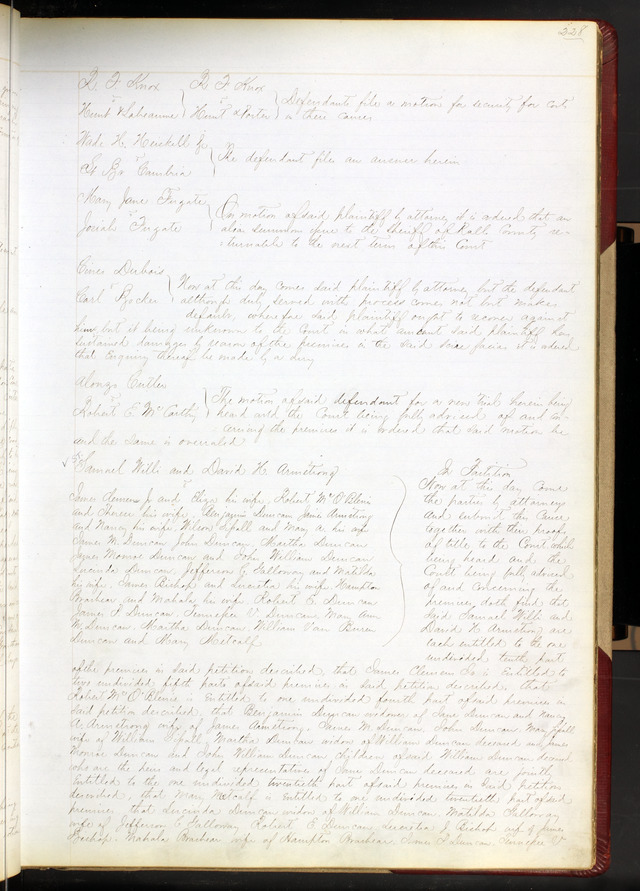 228
D. F. Knox
vs
Hunt & Labeaume
D. F. Knox
vs
Hunt & Porter
Defendants file a motion for security for costs
in these causes
Wade H. Heiskell Jr
vs
St Bo Cambria
The defendant files an answer herein
Mary Jane Fugate
vs
Josiah Fugate
On motion of said plaintiff by attorney it is ordered that an
alias summons issue to the Sheriff of Ralls County re-
turnable to the next term of this Court
Dubois
vs
Carl Bocker
Now at this day comes said plaintiff by attorney but the defendant
although duly served with process comes not but makes
default, wherefore said plaintiff ought to recover against
him but it being unknown to the Court in what amount said plaintiff has
sustained damages by reason of the premises in the said it is ordered
that enquiry thereof be made by a jury
Alonzo Cutler
vs
Robert E. McCarthy
The motion of said defendant for a new trial herein being
heard and the Court being fully advised of and con-
cerning the premises it is ordered that said motion be
and the same is overruled
Samuel Willi and David H. Armstrong
vs
James Clemens Jr and Eliza his wife, Robert McO'Blenis
and his wife, Benjamin Duncan James Armstrong
and Nancy his wife, Wilson Spall and Mary A. his wife
James M. Duncan John Duncan, Martha Duncan
James Monroe Duncan and John William Duncan
Lucinda Duncan, Jefferson G. Galloway and Matilda
his wife, James Bishop and Lucretia his wife Hampton
Brashear and Mahala his wife Robert E. Duncan
James P. Duncan. V. Duncan Mary Ann
M. Duncan Martha Duncan William Van Buren
Duncan and Mary Metcalf
In Partition
Now at this day come
the parties by attorney
and submit this Cause
together with their proofs
of title, to the Court which
being heard and the
Court being fully advised
of and concerning the
premises, doth find that
said Samuel Willi and
David H. Armstrong are
each entitled to the one
undivided tenth part
of the premises in said petition described, that James Clemens Jr is entitled to
two undivided fifth parts of said premises in said petition described, that
Robert McO'Blenis is entitled to one undivided fourth part of said premises in
said petition described, that Benjamin Duncan widower of Jane Duncan and Nancy
A. Armstrong wife of James Armstrong. James M. Duncan, John Duncan. Mary Spall
wife of William Spall, Martha Duncan widow of William Duncan deceased and James
Monroe Duncan and John William Duncan children of said William Duncan deceased
who are the heirs and legal representatives of Jane Duncan deceased are jointly
entitled to the one undivided twentieth part of said premises in said petition
described, that Mary Metcalf is entitled to one undivided twentieth part of said
premises that Lucinda Duncan widow of William Duncan. Matilda Galloway
wife of Jefferson G. Galloway, Robert E. Duncan Lucretia J. Bishop wife of James
Bishop. Mahala Brashear wife of Hampton Brashear, James P. Duncan V.